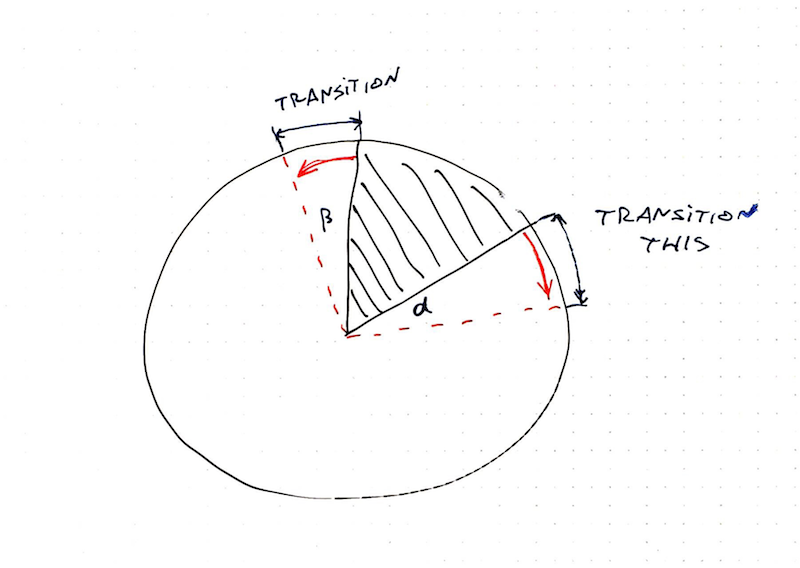 TRANSITION
β
TRANSITION
THIS
α